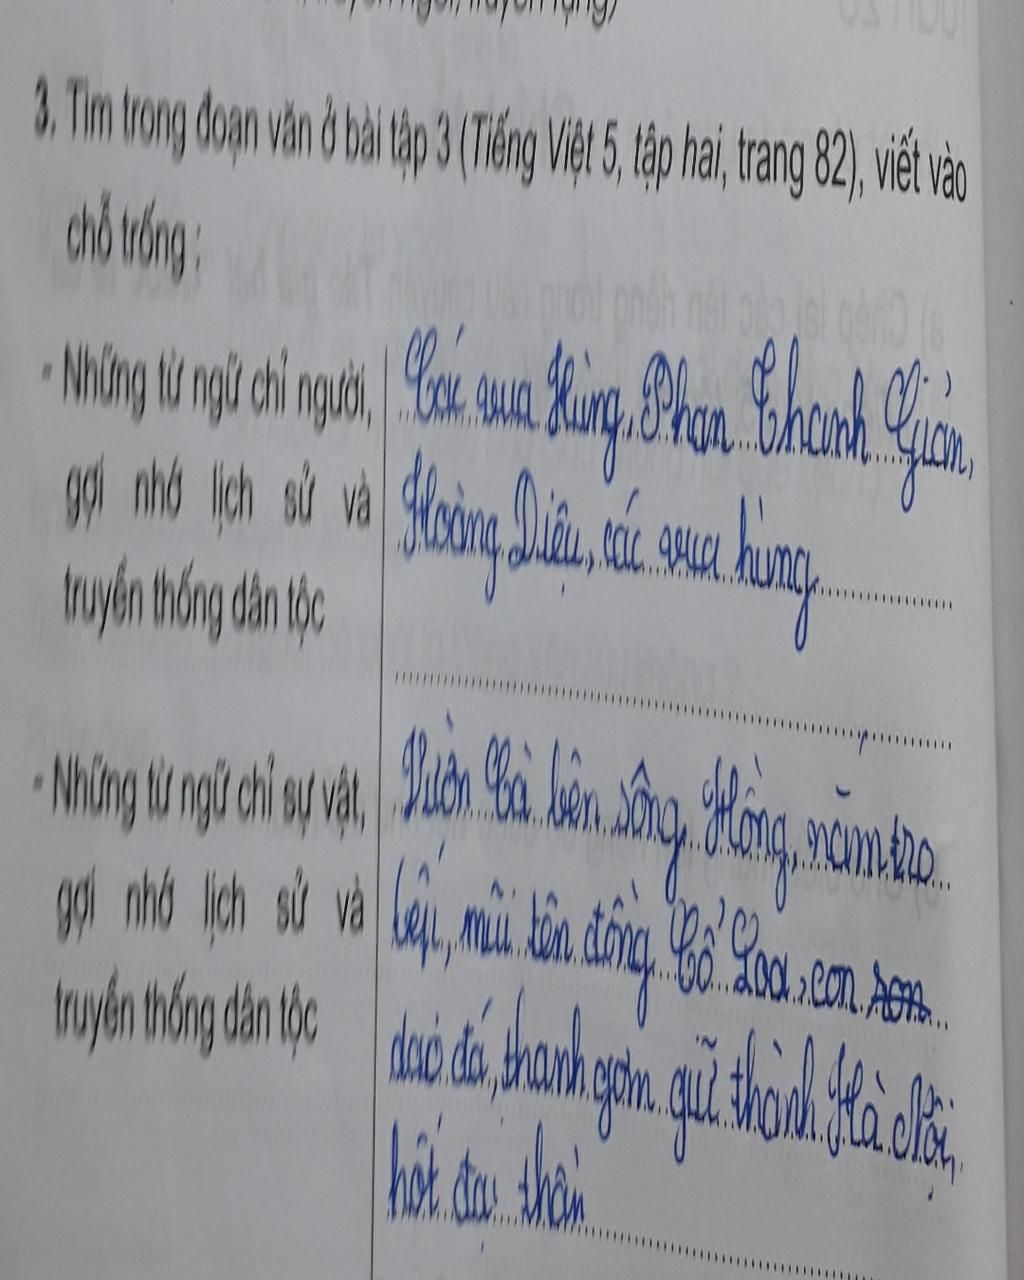 3. Tìm trong đoạn văn ở bài tập 3 (Tiếng Việt 5, tập hai, trang 82), viết vào
chỗ trống :
- Những từ ngữ chỉ người,
gợi nhớ lịch sử và
truyền thống dân tộc
Các vua Hùng, Phan Thanh Giản,
Hoàng Diệu, các vua hùng
- Những từ ngữ chỉ sự vật,
gợi nhớ lịch sử và
truyền thống dân tộc
Vườn Cà bên sông Hồng, nắm tro
bếp, mũi tên đồng Cổ Loa, con
dao đá, thanh gơm giữ thành Hà Nội,
hốt đại thần